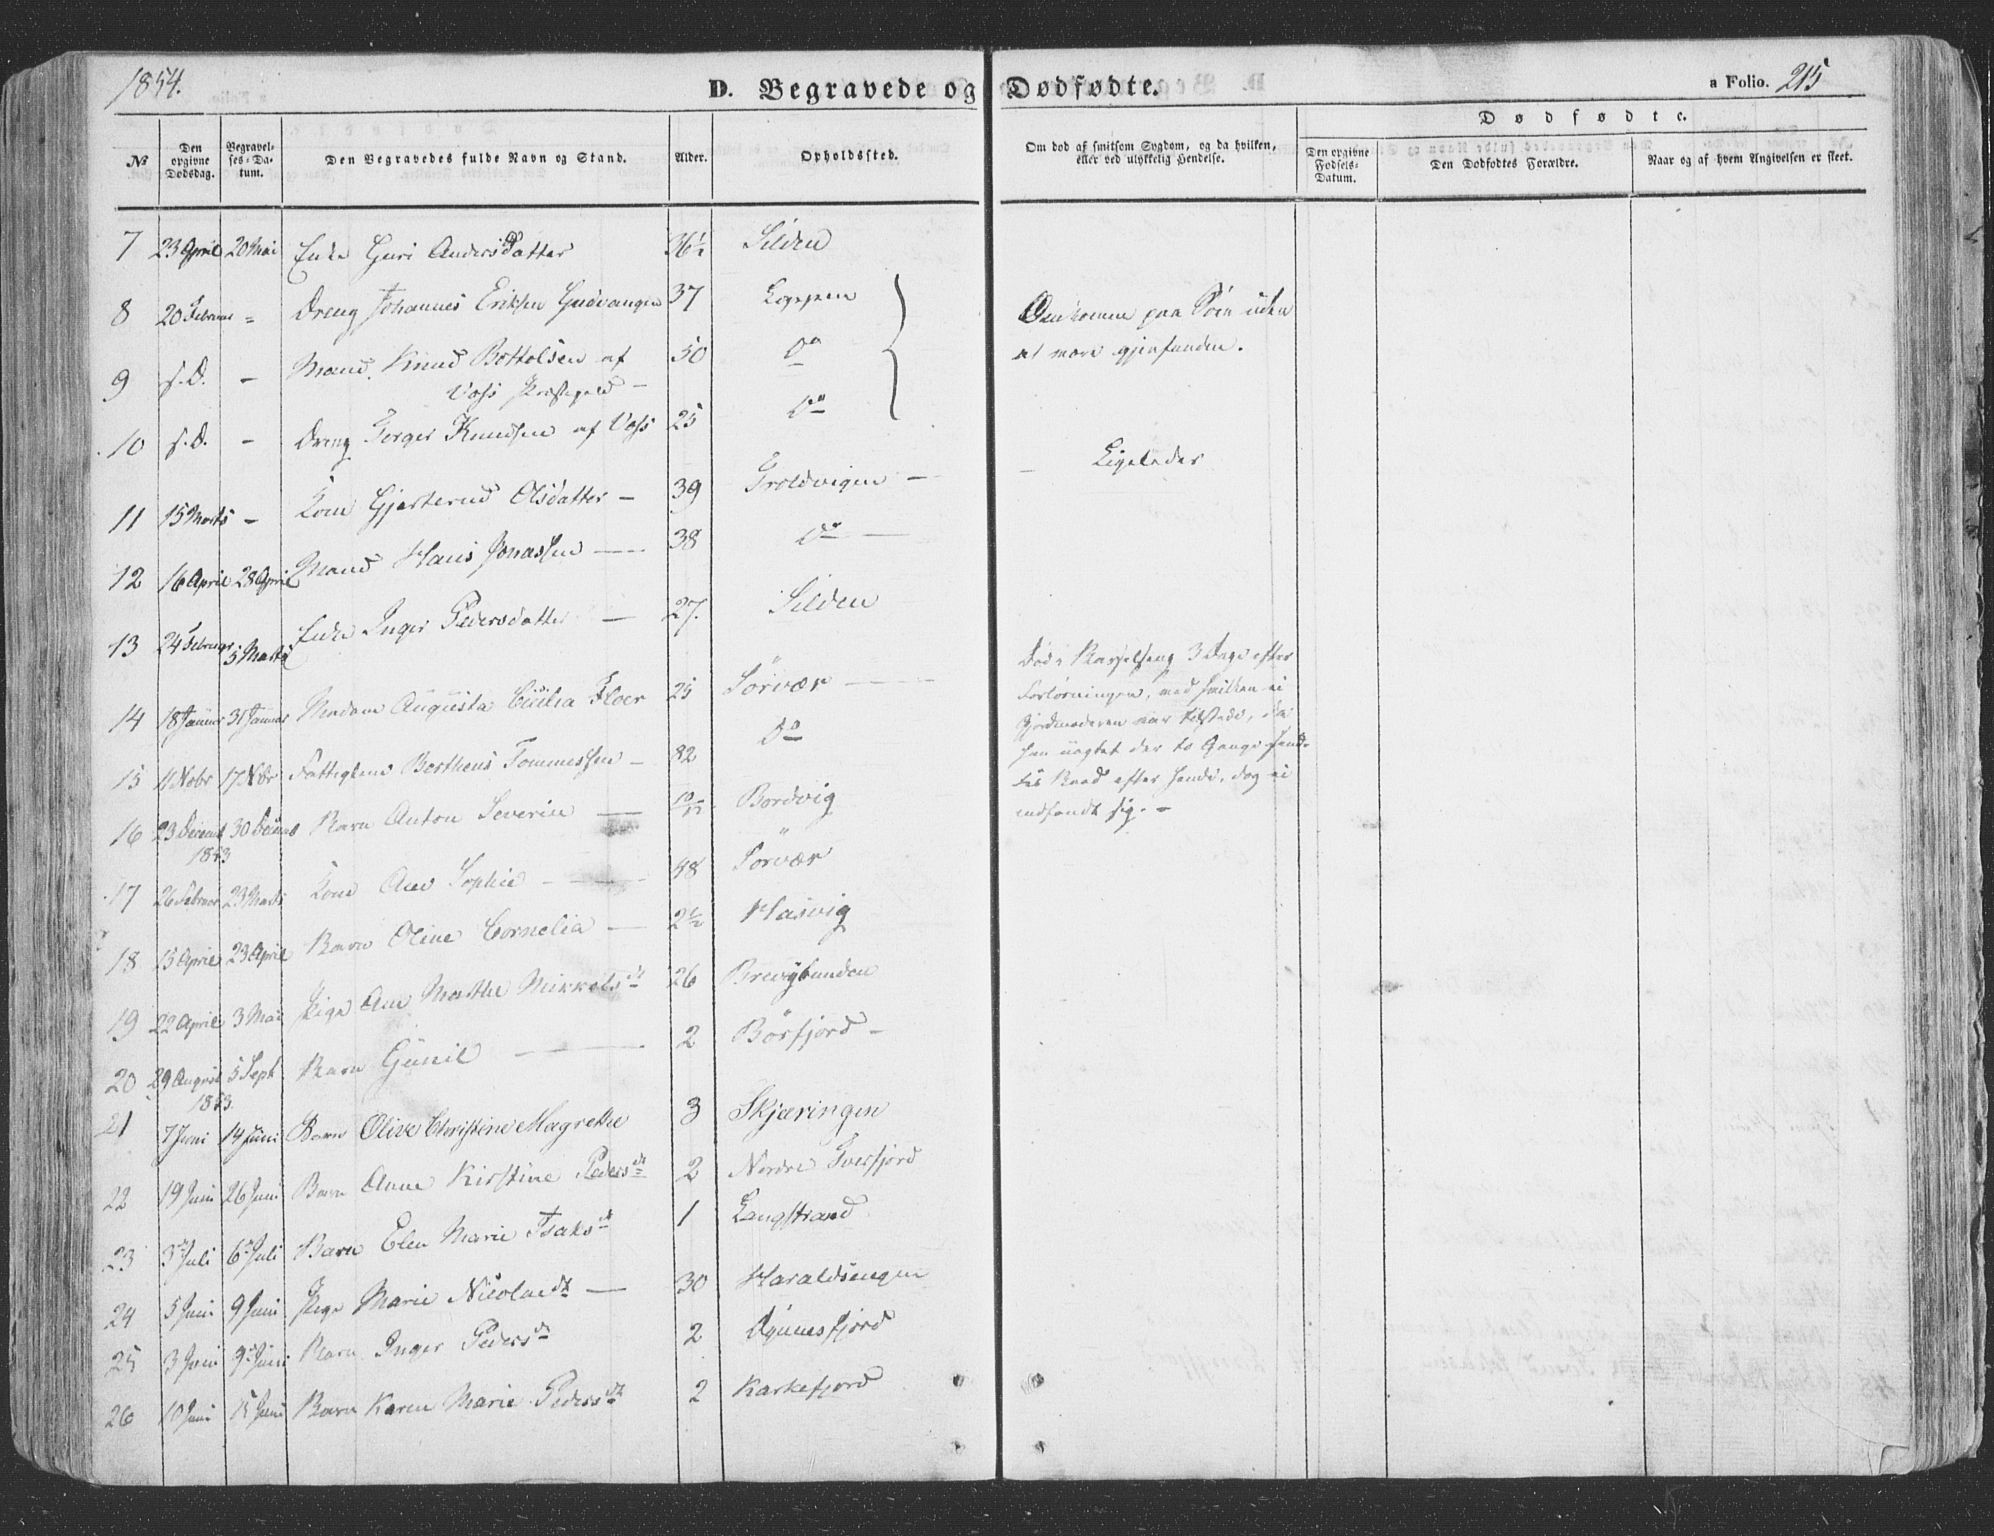 1854.
D. Begravede og Dødfødte.
a Folio. 215
Dødfødte.
No
Den opgivne Dødsdag.
Begravelses-Datum.
Den Begravedes fulde Navn og Stand.
Alder.
Opholdssted.
Om død af smitsom Sygdom, og da hvilken, eller ved ulykkelig Hendelse.
Den opgivne Fødsels-Datum.
Den Dødfødtes Forældre.
Naar og af hvem Angivelsen er skeet.
7 23 April 20 Mai Enke Guri Andersdatter 36½ Silden
8 20 Februar " Dreng Johannes Eriksen Gudvangen 37 Loppen Omkommen paa Søen uden
9 s.D. - Mand Knud Bottolsen af 50 Do at være gjenfunden.
Voss Præstegield -
10 s.D. - Dreng Torger Knudsen af Voss 25 Do
11 15 Marts - Kone Gjertrud Olsdatter - 39 - Ligeledes
12 16 April 28 April Mand Hans Jonassen 38 Do
13 24 Februar 5 Marts Enke Inger Pedersdatter 27. Silden
14 18 Januar 31 Januar Madam Augusta Cecilia Floer 25 Sørvær Død i Barselseng 3 Dage efter
Forløsningen, ved hvilken ei
Gjordmoderen var tilstede, da
hun uagtet der to Gange
Baad efter hende, dog ei
indfandt sig. -
15 11 Novbr 17 Nvbr Fattiglem Berthens Tommessen - 82 Do
16 23 Decemb 30 Decemb Barn Anton Severin 10/12 Bordvig
1853
17 26 Februar 23 Marts Kone Ane Sophie 48 Sørvær
18 15 April 23 April Barn Oline Cornelia 2½ Hasvig
19 22 April 3 Mai Pige Ane Marthe Mikkelsdt 26
20 29 August 5 Sept Barn Gunil 2 Børfjord -
1853.
21 7 Juni 14 Juni Barn Olive Christine Magrethe 3 Skjæringen
22 19 Juni 26 Juni Barn Anne Kirstine Pedersdt 2 Nordre Tverfjord
23 3 Juli 6 Juli Barn Elen Marie Isaksdt 1 Langstrand
24 5 Juni 9 Juni Pige Marie Nicolaidt 30 Haraldsengen
25 3 Juni 9 Juni Barn Inger Pedersdt 2 Dønnesfjord
26 10 Juni 15 Juni Barn Karen Marie Pedersdt 2 Karkefjord